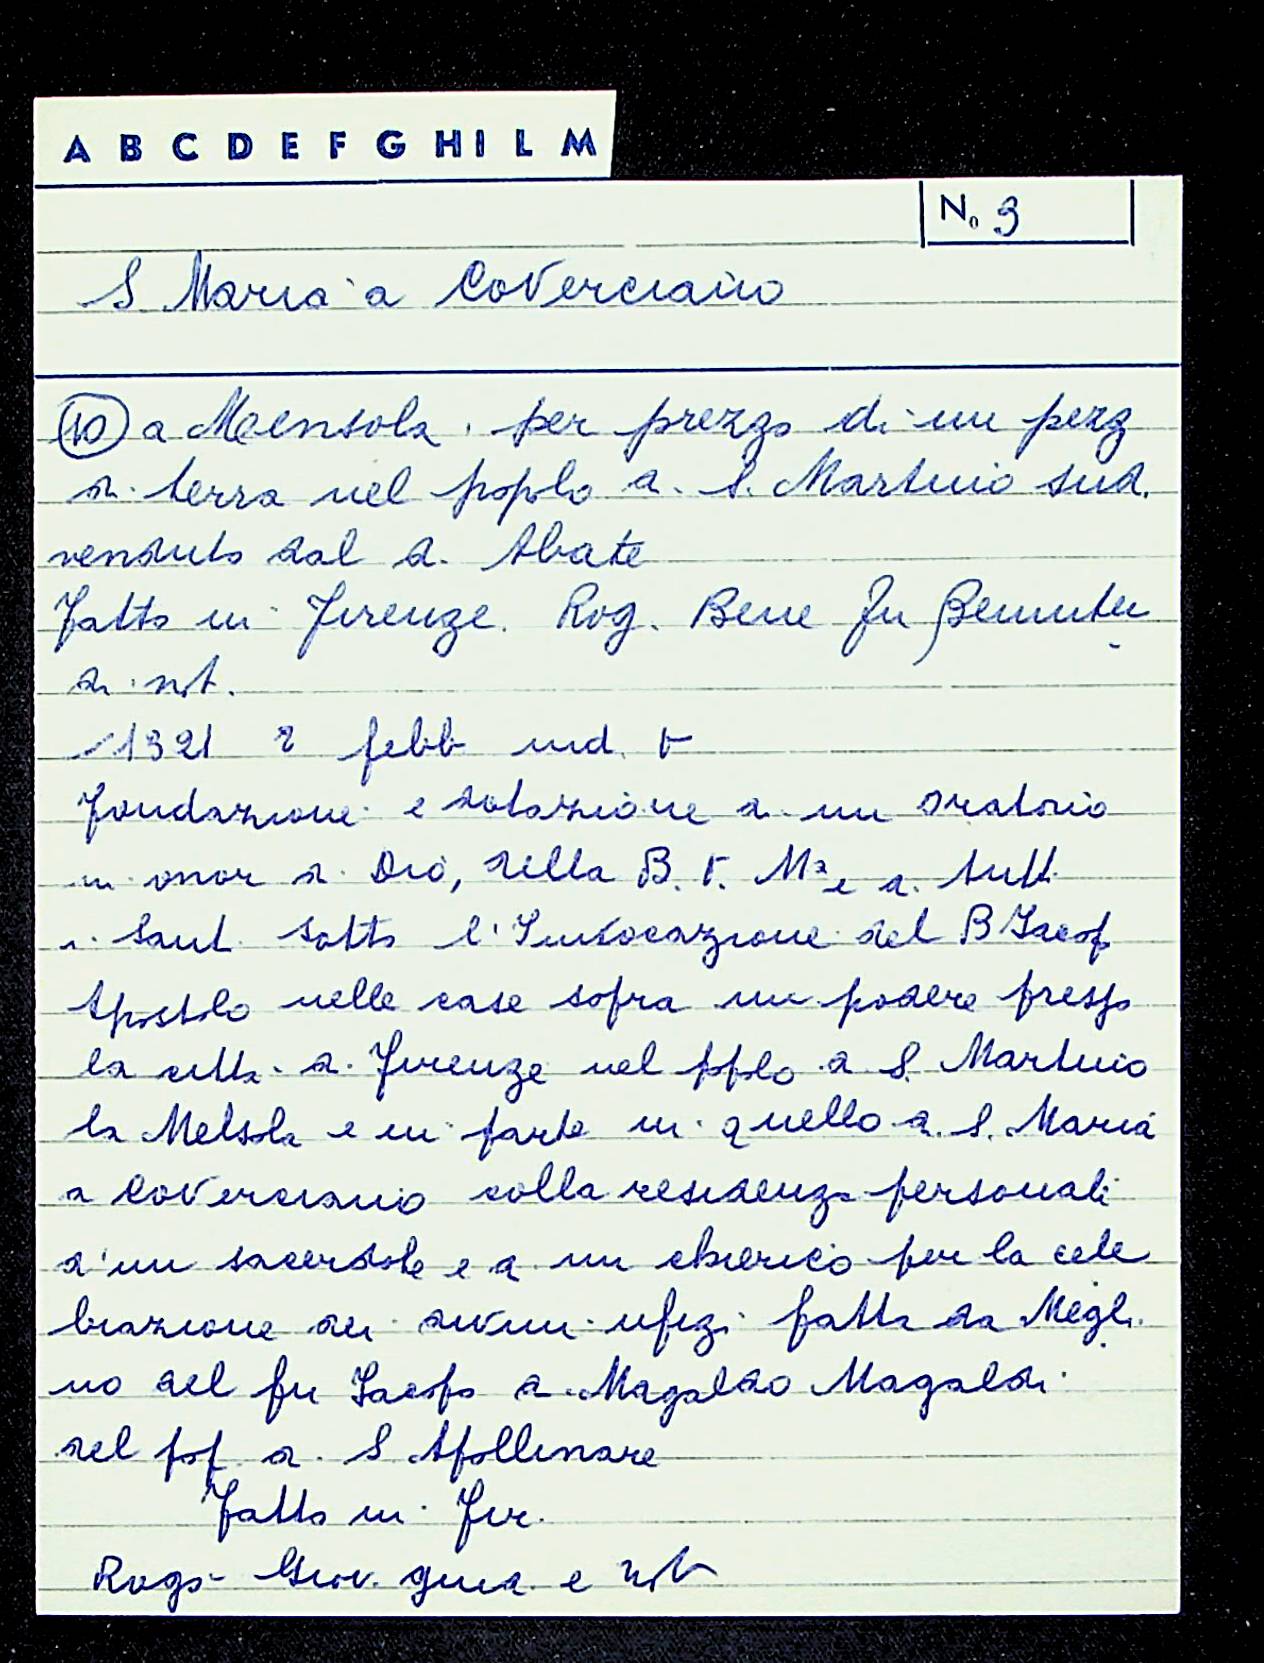 A B C D E F G H I L M
N. 9
S. Maria a Coverciano
10 a Mensola. per prezzo di un pezz
di terra nel popolo di S. Martino sud.
venduto dal d. Abate
Fatto in Firenze. Rog. Bene fu Benvuti
di not.
1321 2 febb ind. V
Fondazione e dotazione di un oratorio
in onor di Dio, della B. V. Ma e di tutti
i Santi sotto l'Invocazione del B Jacop
Apostolo nelle case sopra un podere presso
la citta di Firenze nel pplo di S. Martino
la Melsola e in parte in quello di S. Maria
a Coverciano colla residenza personali
d'un sacerdote e di un chierico per la cele
brazione dei divini ufizi fatta da Megli
no del fu Jacopo di Magaldo Magaldi
del pop. di S Apollinare
Fatto in Fir.
Rogo Giov. giud. e not